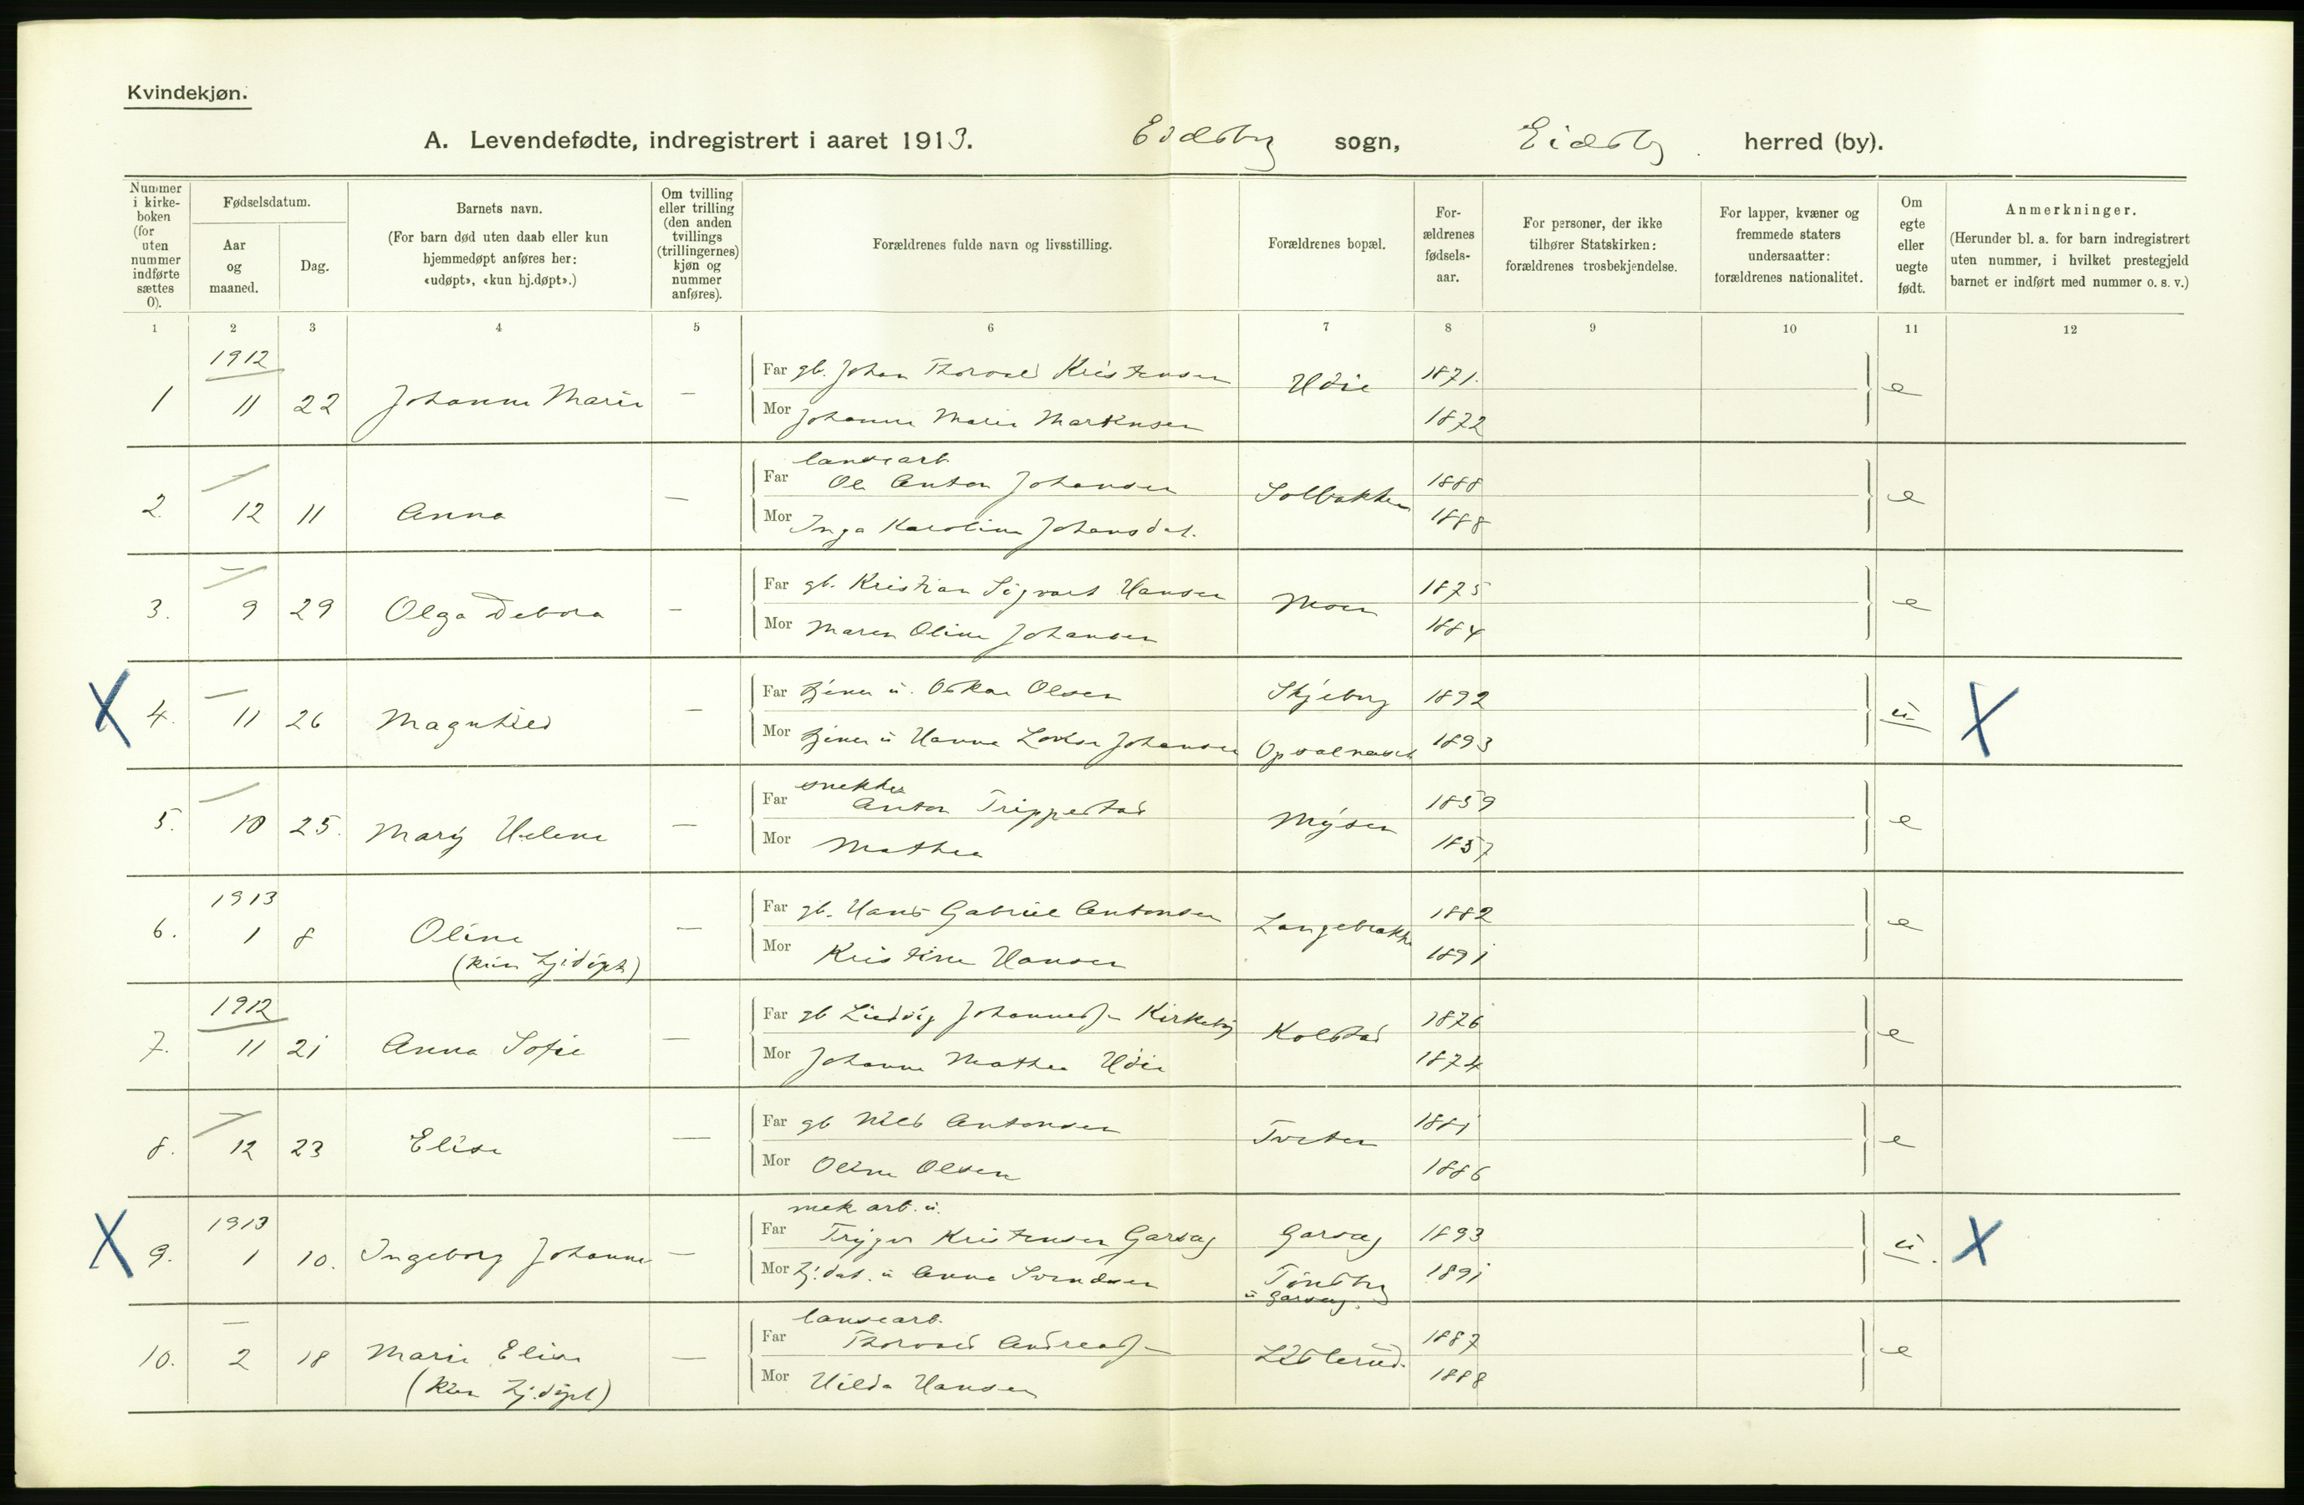 Kvindekjøn.
A. Levendefødte, indregistrert i aaret 1913. Eidsberg sogn, Eidsbg herred (by).
Nummer i kirke-boken (for uten nummer indførte sættes 0).
Fødselsdatum.
Aar og maaned.
Dag.
Barnets navn.
(For barn død uten daab eller kun hjemmedøpt anføres her: «udøpt», «kun hj.døpt».)
Om tvilling eller trilling (den anden tvillings (trillingernes) kjøn og nummer anføres).
Forældrenes fulde navn og livsstilling.
Forældrenes bopæl.
For-ældrenes fødsels-aar.
For personer, der ikke tilhører Statskirken: forældrenes trosbekjendelse.
For lapper, kvæner og fremmede staters undersaatter: forældrenes nationalitet.
Om egte eller uegte født.
Anmerkninger.
(Herunder bl. a. for barn indregistrert uten nummer, i hvilket prestegjeld barnet er indført med nummer o. s. v.)
1 2 3 4 5 6 7 8 9 10 11 12
1912
Far gb. Johan Thorvald Kristensen Udie 1871.
1 11 22 Johanne Marie — e
Mor Johanne Marie Markusen 1872
landearb.
Far Ole Anton Johansen Solbakken 1888
2. — 12 11 Anna — e
Mor Inga Karoline Johansdat. 1888
Far gb. Kristian Sigvart Hansen Moen 1875
3. — 9 29 Olga Debora — e
Mor Maren Oline Johansen 1884
Far tjener u. Oskar Olsen Skjeberg 1892
X 4. — 11 26 Magnhild — u X
Mor tjener u Hanna Lovise Johansen 1893
snekker
Far Anton Trippestad Mysen 1859
5. — 10 25. Mary Helene — e
Mor Mathea 1857
1913
Far gb. Hans Gabriel Antonsen Langebrække 1882
6. 1 8 Oline — e
(kun hjdøpt)
Mor Kristine Hansen 1891
1912
Far gb Ludvig Johannes Kirkeby Kolstad 1876
7. 11 21 Anna Sofie — e
Mor Johanne Mathea Udie 1874
Far gb Nils Antonsen Tveten 1881
8. — 12 23 Elise — e
Mor Oline Olsen 1886
mek arb. u.
1913
Far Trygve Kristensen Garseg Garseg 1893
X 9. 1 10. Ingeborg Johanne — u. X
Mor hj. dat. u Anna Svendsen 1891
u Garseg.
landearb.
Far Thorvald Andreas 1887
10. — 2 18 Marie Elise — e
(kun hj.døpt)
Mor Hilda Hansen 1888